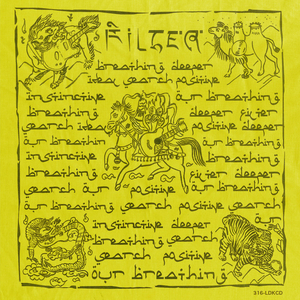 FILTER
breathing deeper
idea search positive
instinctive our breathing
breathing deeper filter
search idea positive deeper
our breathin our breathing
instinctive filter deeper
breathing our breathing
search our positive search our
instinctive deeper
breathing search
search positive
our breathing
516-LDKCD